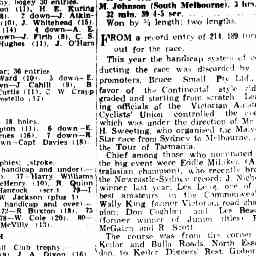 logey 30 entries.
(11), H. E. Kuring
(8). 2 down—J. Aikin-
(10), J. Whitehead (15),
(14). 4 down—A. E.
down—J. Firth (8), C.
Hughes (11), J. O'Hara
36 entries
Ward (10). 3 down—E.
J. Cahill (9), B
Curtis (12), C. W Crisp
(17)
18 holes.
(11). 6 down—E.
(16). 7 down—R
down—Capt Davies (18)
stroke
handicap and under)—
17 Harry Williams
(10), R Quinn
Hancock (scr) 79—J
W Jackson (plus 1)
handicap and over)—
72—R Buxton (18). 75
76—W. Cole (20). 80—
McVilly (13).
Club trophy
J. A. Dixon (16)
M. Johnson (South Melbourne), 3 hrs.
32 min. 39 4-5 sec.
Won by ¾ length; two lengths.
FROM a record entry of 214, 189 turned
out for the race.
This year the handicap system of con-
ducting the race was discarded by the
promoters, Bruce Small Pty Ltd., in
favor of the Continental style riders
graded and starting from scratch Lead-
ing officials of the Victorian Amateur
Cyclists' Union controlled the race
which was under the direction of Mr
H. Sweeting, who organised the Mara
tour from Sydney to Melbourne, and
the Tour of Tasmania.
Chief among those who nominated for
the big event were Eddie Mileikis (Aus-
tralasian champion), who recently broke
the Newcastle-Sydney record; J. Nichol,
winner last year; Les Long one of the
best amateurs in the Commonwealth;
Wally King former Victorian road cham-
pion; Don Coghlan and Les Beasley
(former winner of junior title) F.
McGann and R Scott
The course was from the corner of
Keilor and Bulla Roads, North Essen-
don, to Keilor, Diggers Rest Gisborne